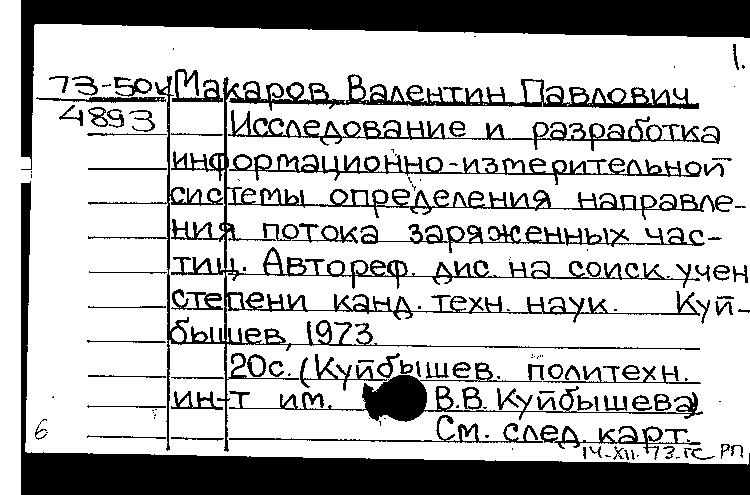 1.
73-50к Макаров, Валентин Павлович
4893 Исследование и разработка
информационно-измерительной
системы определения направле-
ния потока заряженных час-
тиц. Автореф. дис. на соиск. учен
степени канд. техн. наук. Куй-
бышев, 1973.
20с. (Куйбышев. политехн.
ин-т им. В.В. Куйбышева)
См. след. карт.
6 14-XII-73 гс РП